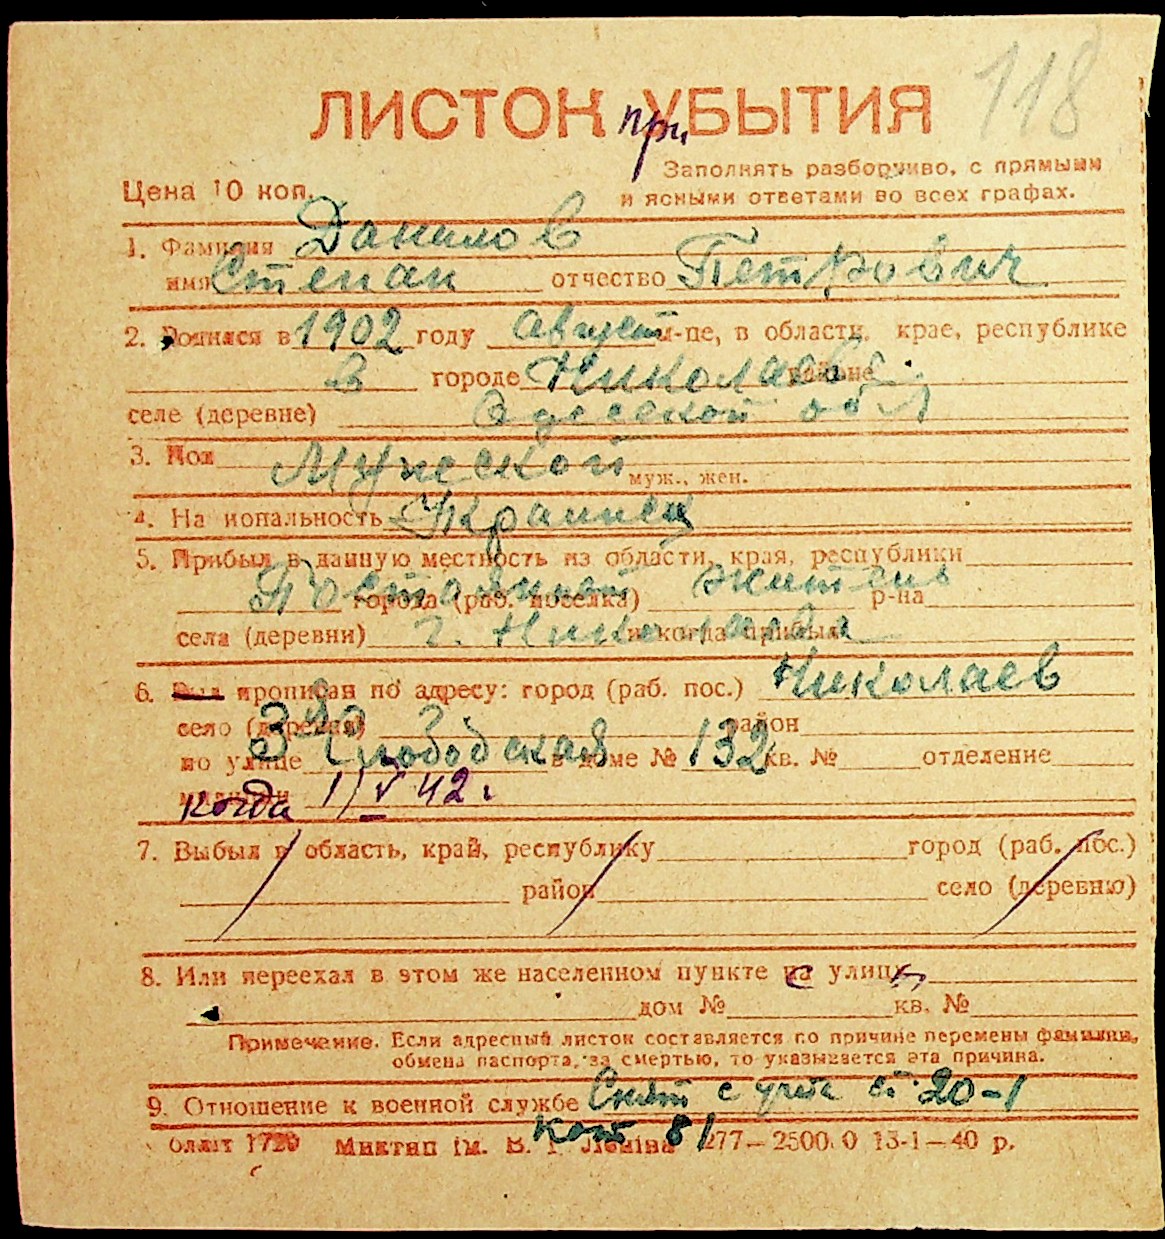 118
ЛИСТОК при УБЫТИЯ
Заполнять разборчиво, с прямыми
Цена 10 коп. и ясными ответами во всех графах.
1. Фамилия Данилов
имя Степан отчество Петрович
2. Родился в 1902 году август м-це, в области, крае, республике
в городе Николаев районе
селе (деревне) Одесской обл
3. Пол Мужской муж., жен.
4. Национальность Украинец
5. Прибыл в данную местность из области, края, республики
Постоянный житель города (раб. поселка) р-на
села (деревни) г. Николаева и когда прибыл
6. Был прописан по адресу: город (раб. пос.) Николаев
село (деревня) район
по улице 3 Слободская в доме № 132 кв. № отделение
милиции когда 1/V 42 г.
7. Выбыл в область, край, республику город (раб. пос.)
район село (деревню)
8. Или переехал в этом же населенном пункте на улицу
дом № кв. №
Примечание. Если адресный листок составляется по причине перемены фамилии,
обмена паспорта, за смертью, то указывается эта причина.
9. Отношение к военной службе Снят с учета ст 20-1
Облліт 1720 Миктип ім. В. І. Леніна 277—25000 13-1—40 р.